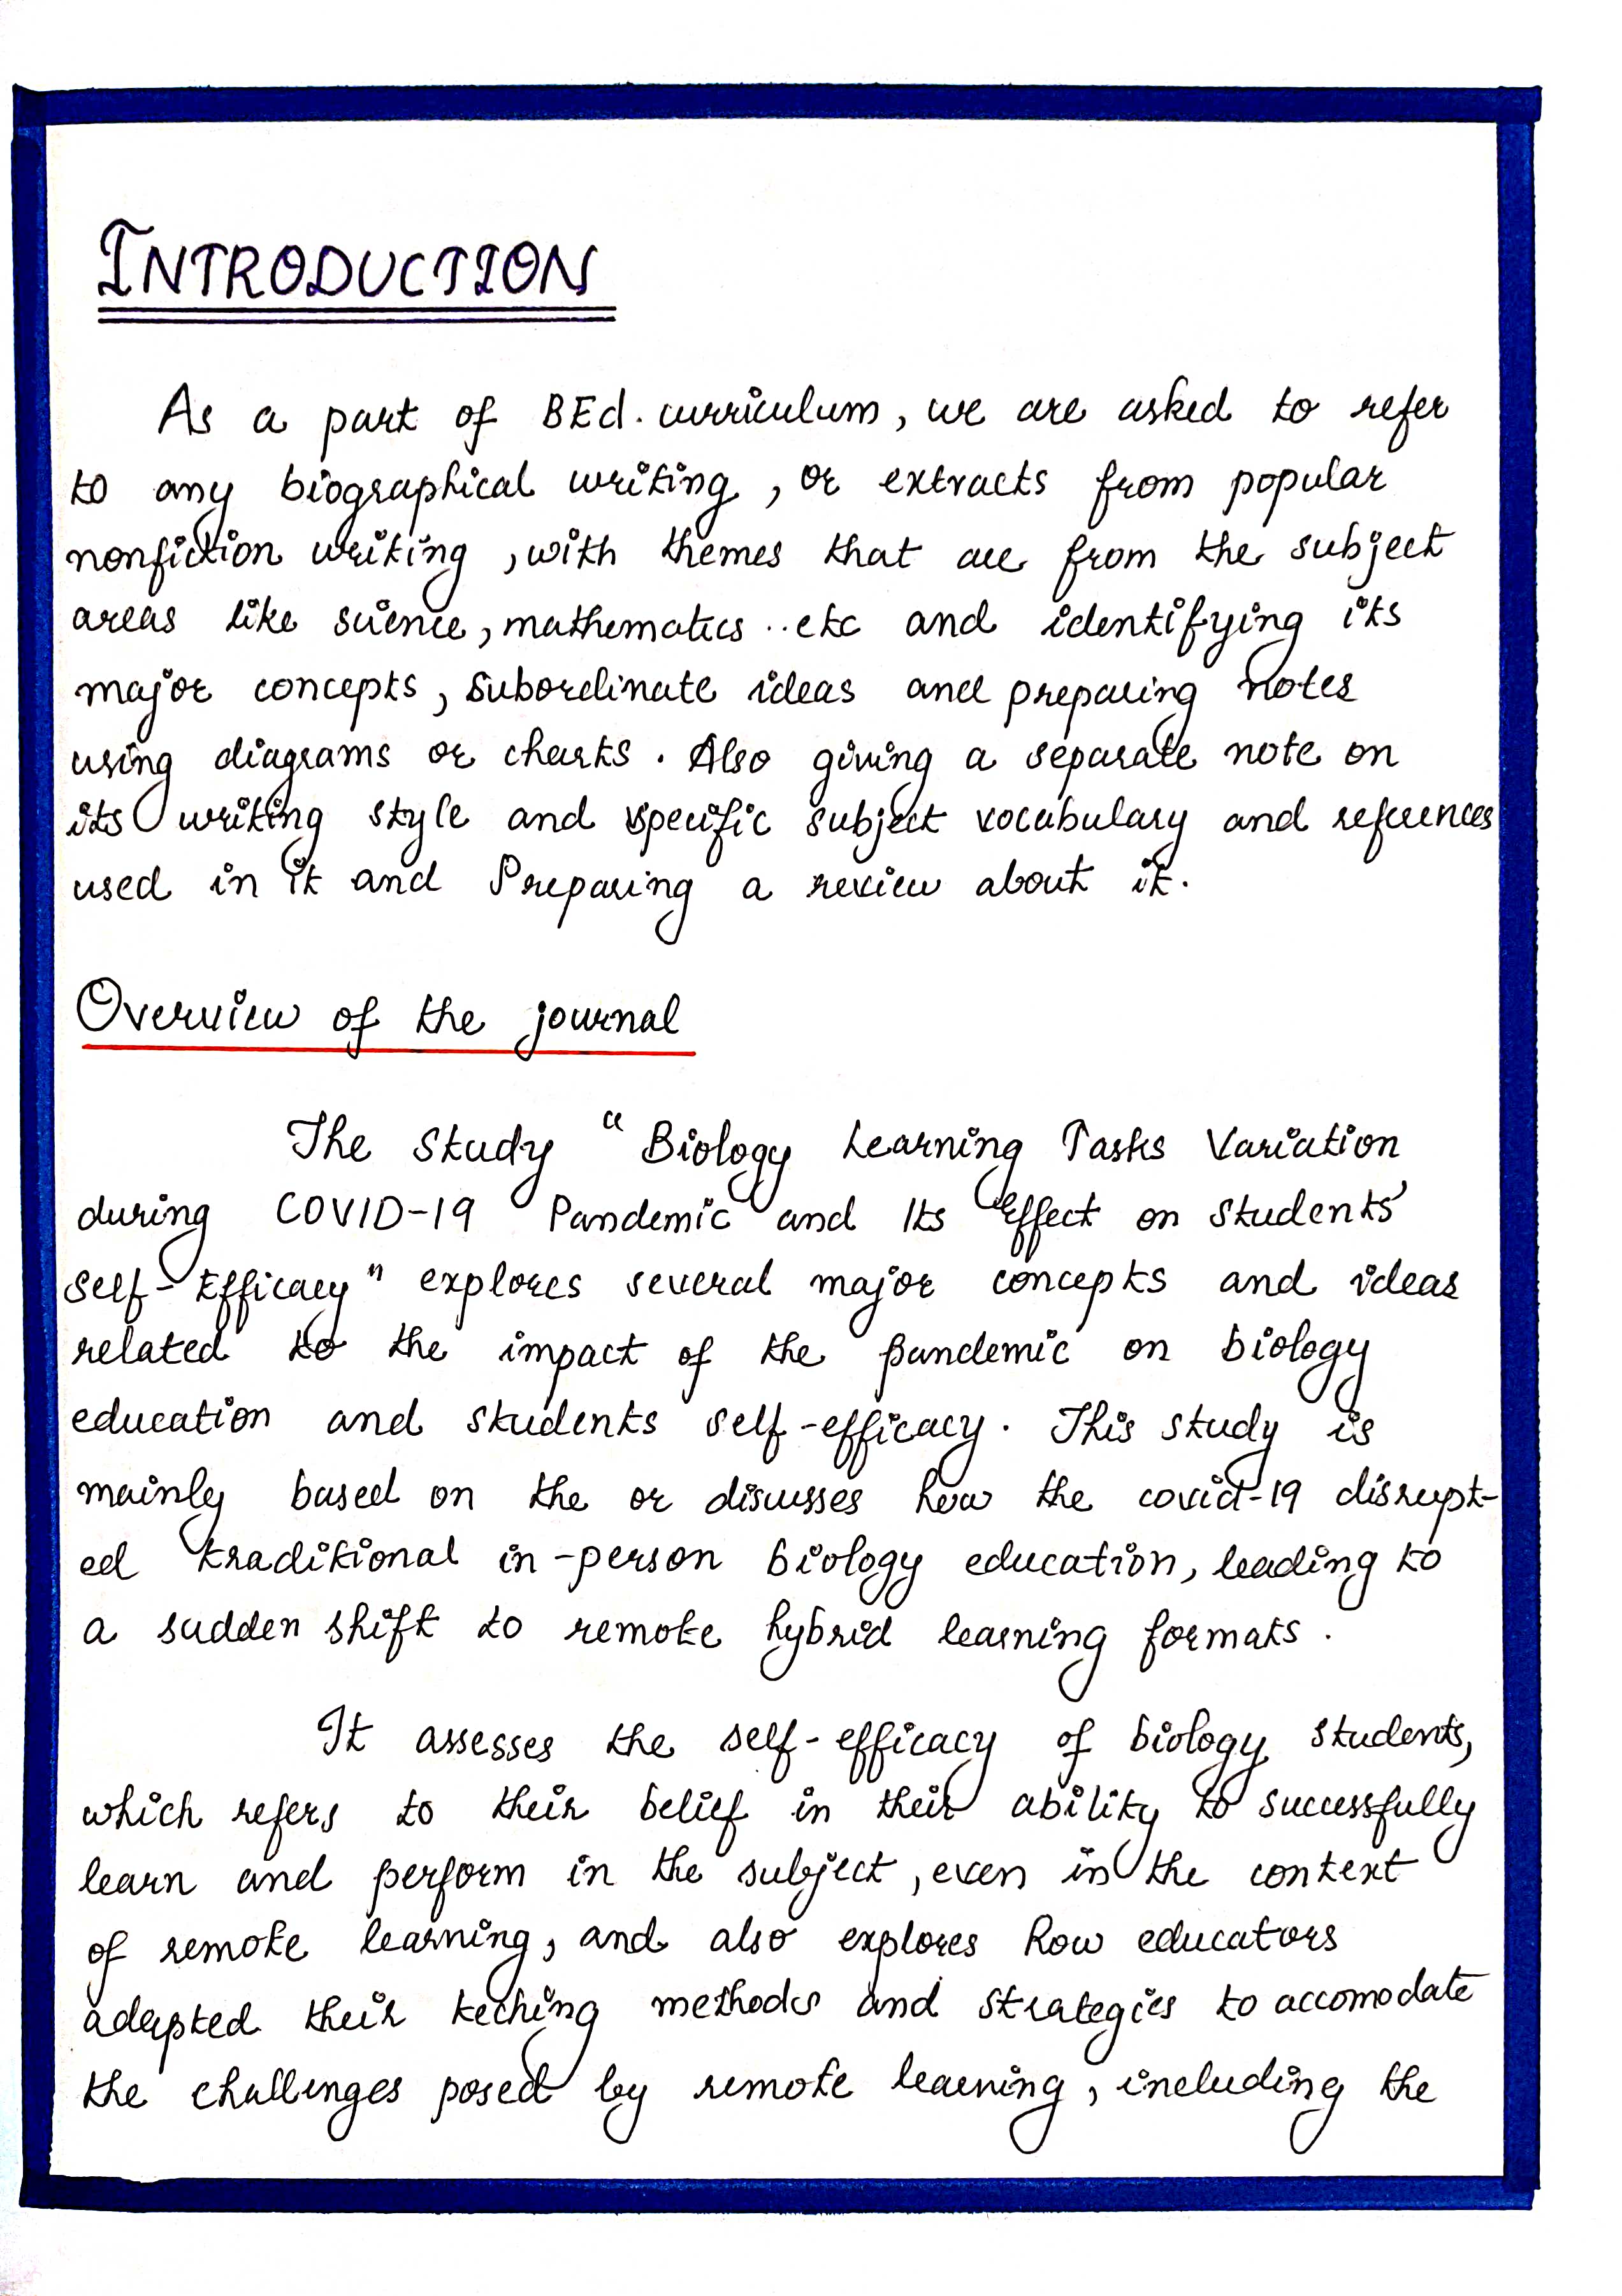 INTRODUCTION
As a part of BEd. curriculum, we are asked to refer
to any biographical writing, or extracts from popular
nonfiction writing, with themes that are from the subject
areas like science, mathematics ..etc and identifying its
major concepts, subordinate ideas and preparing notes
using diagrams or charts. Also giving a separate note on
its writing style and specific subject vocabulary and references
used in it and Preparing a review about it.
Overview of the journal
The Study "Biology Learning Tasks Variation
during COVID-19 Pandemic and Its Effect on Students'
Self-Efficacy" explores several major concepts and ideas
related to the impact of the pandemic on biology
education and students self-efficacy. This study is
mainly based on the or discusses how the covid-19 disrupt-
ed traditional in-person biology education, leading to
a sudden shift to remote hybrid learning formats.
It assesses the self-efficacy of biology students,
which refers to their belief in their ability to successfully
learn and perform in the subject, even in the context
of remote learning, and also explores how educators
adapted their teching methods and strategies to accomodate
the challenges posed by remote learning, including the